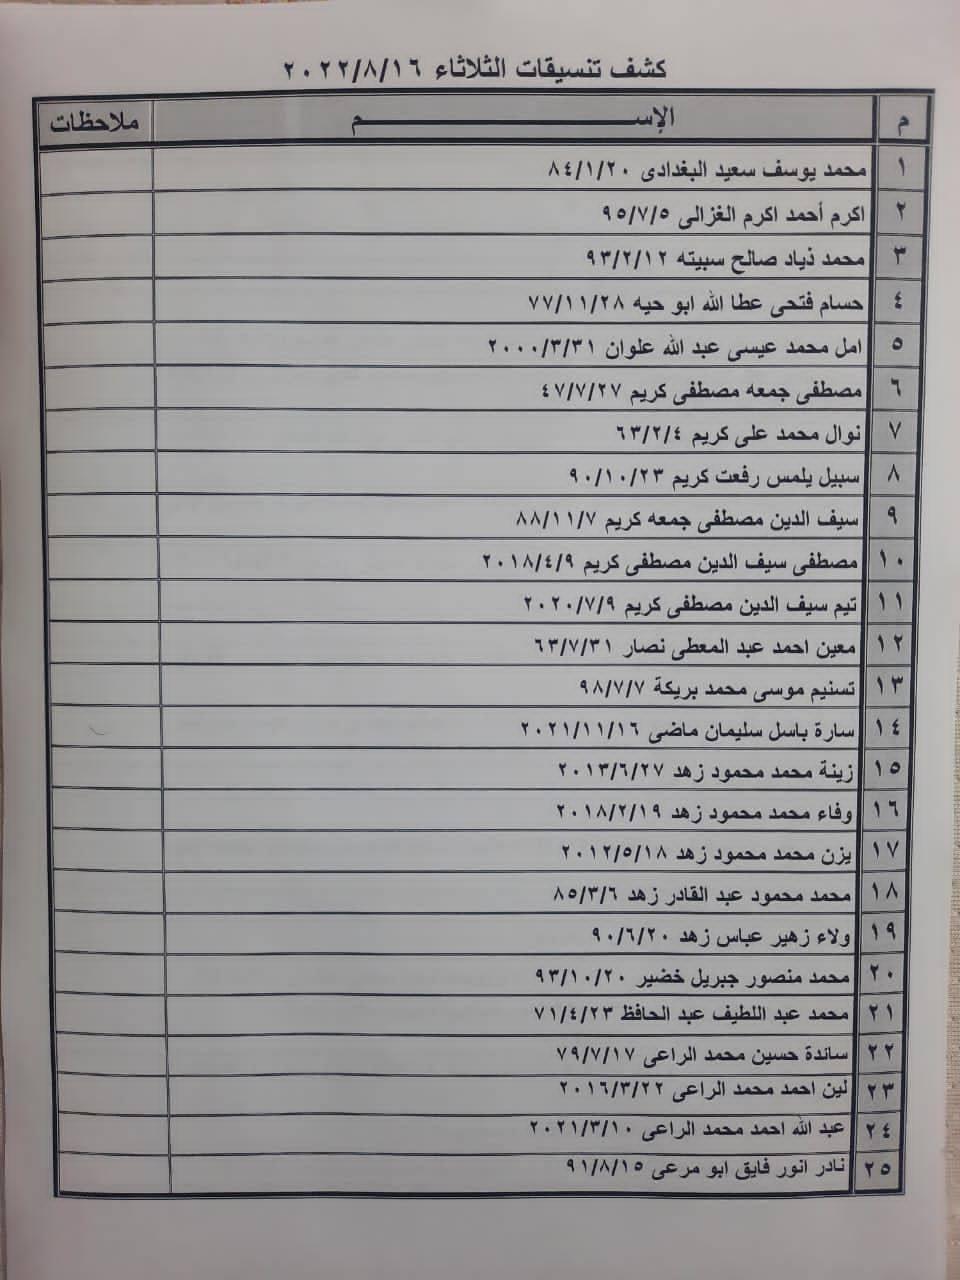 كشف تنسيقات الثلاثاء ٢٠٢٢/٨/١٦
م الإســــــــــــم ملاحظات
١ محمد يوسف سعيد البغدادى ٨٤/١/٢٠
٢ اكرم أحمد اكرم الغزالى ٩٥/٧/٥
٣ محمد ذياد صالح سبيته ٩٣/٢/١٢
٤ حسام فتحى عطا الله ابو حيه ٧٧/١١/٢٨
٥ امل محمد عيسى عبد الله علوان ٢٠٠٠/٣/٣١
٦ مصطفى جمعه مصطفى كريم ٤٧/٧/٢٧
٧ نوال محمد على كريم ٦٣/٢/٤
٨ سبيل يلمس رفعت كريم ٩٠/١٠/٢٣
٩ سيف الدين مصطفى جمعه كريم ٨٨/١١/٧
١٠ مصطفى سيف الدين مصطفى كريم ٢٠١٨/٤/٩
١١ تيم سيف الدين مصطفى كريم ٢٠٢٠/٧/٩
١٢ معين احمد عبد المعطى نصار ٦٣/٧/٣١
١٣ تسنيم موسى محمد بريكة ٩٨/٧/٧
١٤ سارة باسل سليمان ماضى ٢٠٢١/١١/١٦
١٥ زينة محمد محمود زهد ٢٠١٣/٦/٢٧
١٦ وفاء محمد محمود زهد ٢٠١٨/٢/١٩
١٧ يزن محمد محمود زهد ٢٠١٢/٥/١٨
١٨ محمد محمود عبد القادر زهد ٨٥/٣/٦
١٩ ولاء زهير عباس زهد ٩٠/٦/٢٠
٢٠ محمد منصور جبريل خضير ٩٣/١٠/٢٠
٢١ محمد عبد اللطيف عبد الحافظ ٧١/٤/٢٣
٢٢ ساندة حسين محمد الراعى ٧٩/٧/١٧
٢٣ لين احمد محمد الراعى ٢٠١٦/٣/٢٢
٢٤ عبد الله احمد محمد الراعى ٢٠٢١/٣/١٠
٢٥ نادر انور فايق ابو مرعى ٩١/٨/١٥